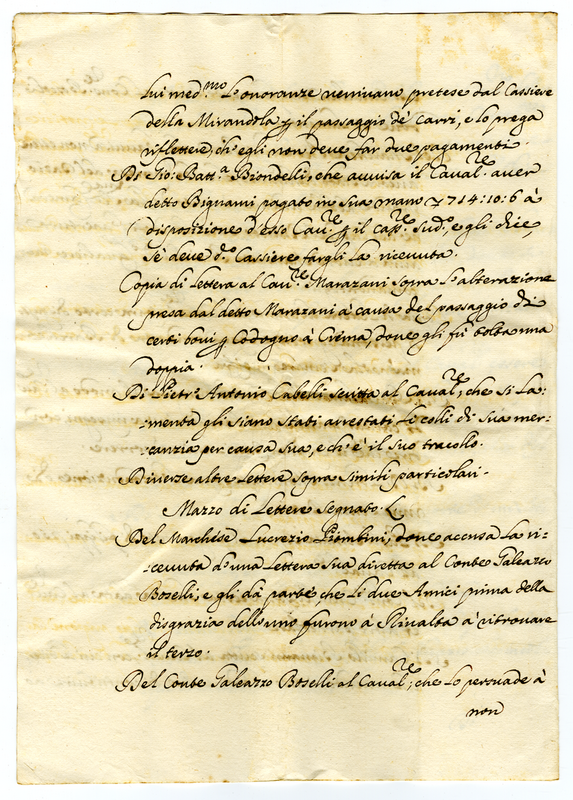 lui med.mo l'onoranze venivano pretese dal Cassiere
della Mirandola p il passaggio de' Carri, e lo prega
riflettere, ch'egli non deve far due pagamenti.
Di Gio: Batt.a Biondelli, che avvisa il Caval.re aver
detto Bignami pagato in sua mano 714:10:6 à
disposizione d'esso Cav.re p il Cass.re Sud.o, e gli dice,
se deve d.o Cassiere fargli la ricevuta.
Copia di Lettera al Cav.re Marazani sopra l'alterazione
presa dal detto Marazani à causa del passaggio di
certi bovi p Codogno à Crema, dove gli fù tolta una
doppia.
Di Pietr'Antonio Cabelli scritta al Caval.re, che si la:
:menta gli siano stati arrestati li colli di sua mer:
:canzia per causa sua, e ch'è il suo tracollo.
Diverse altre Lettere sopra simili particolari.
Mazzo di Lettere segnato. C
Del Marchese Lucrezio Piombini, dove accusa la ri:
:cevuta d'una Lettera sua diretta al Conte Galeazzo
Boselli; e gli dà parte, che li due Amici prima della
disgrazia dell'uno furono à Rivalta à ritrovare
il terzo.
Del Conte Galeazzo Boselli al Caval.re, che lo persuade à
non